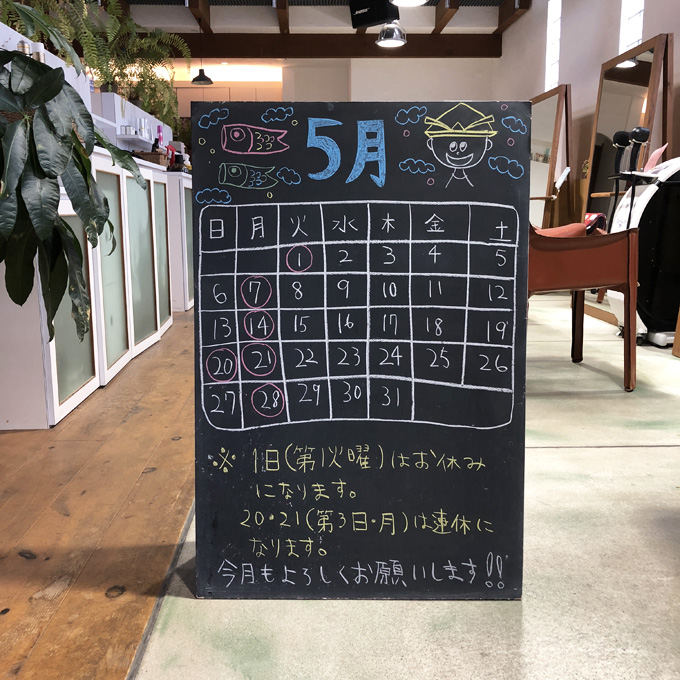 5月
日 月 火 水 木 金 土
1 2 3 4 5
6 7 8 9 10 11 12
13 14 15 16 17 18 19
20 21 22 23 24 25 26
27 28 29 30 31
※ 1日(第1火曜)はお休み
になります。
20・21(第3日・月)は連休に
なります。
今月もよろしくお願いします!!